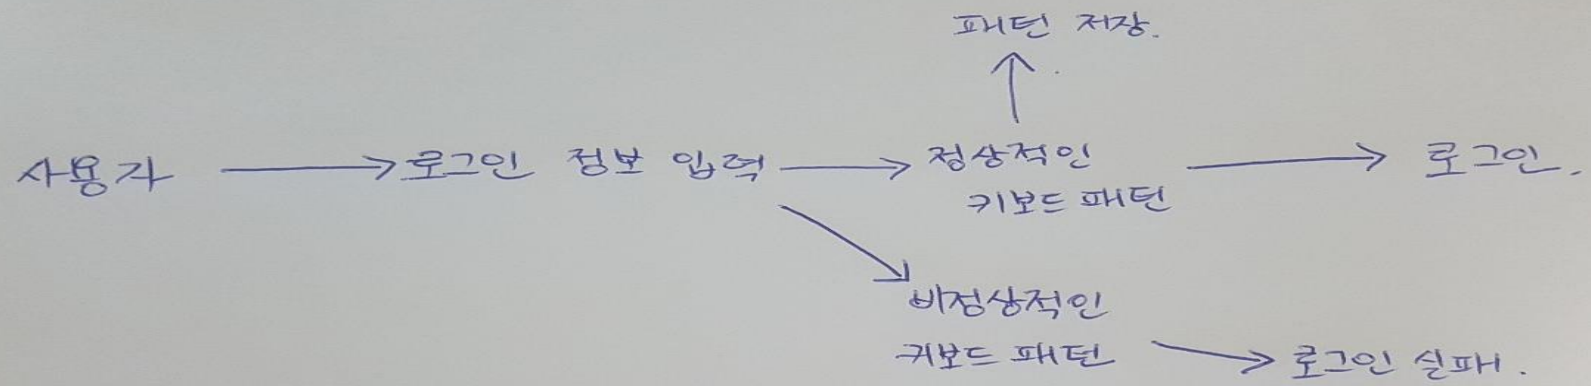 패턴 저장.
사용자
로그인 정보 입력
정상적인
키보드 패턴
로그인.
비정상적인
키보드 패턴
로그인 실패.